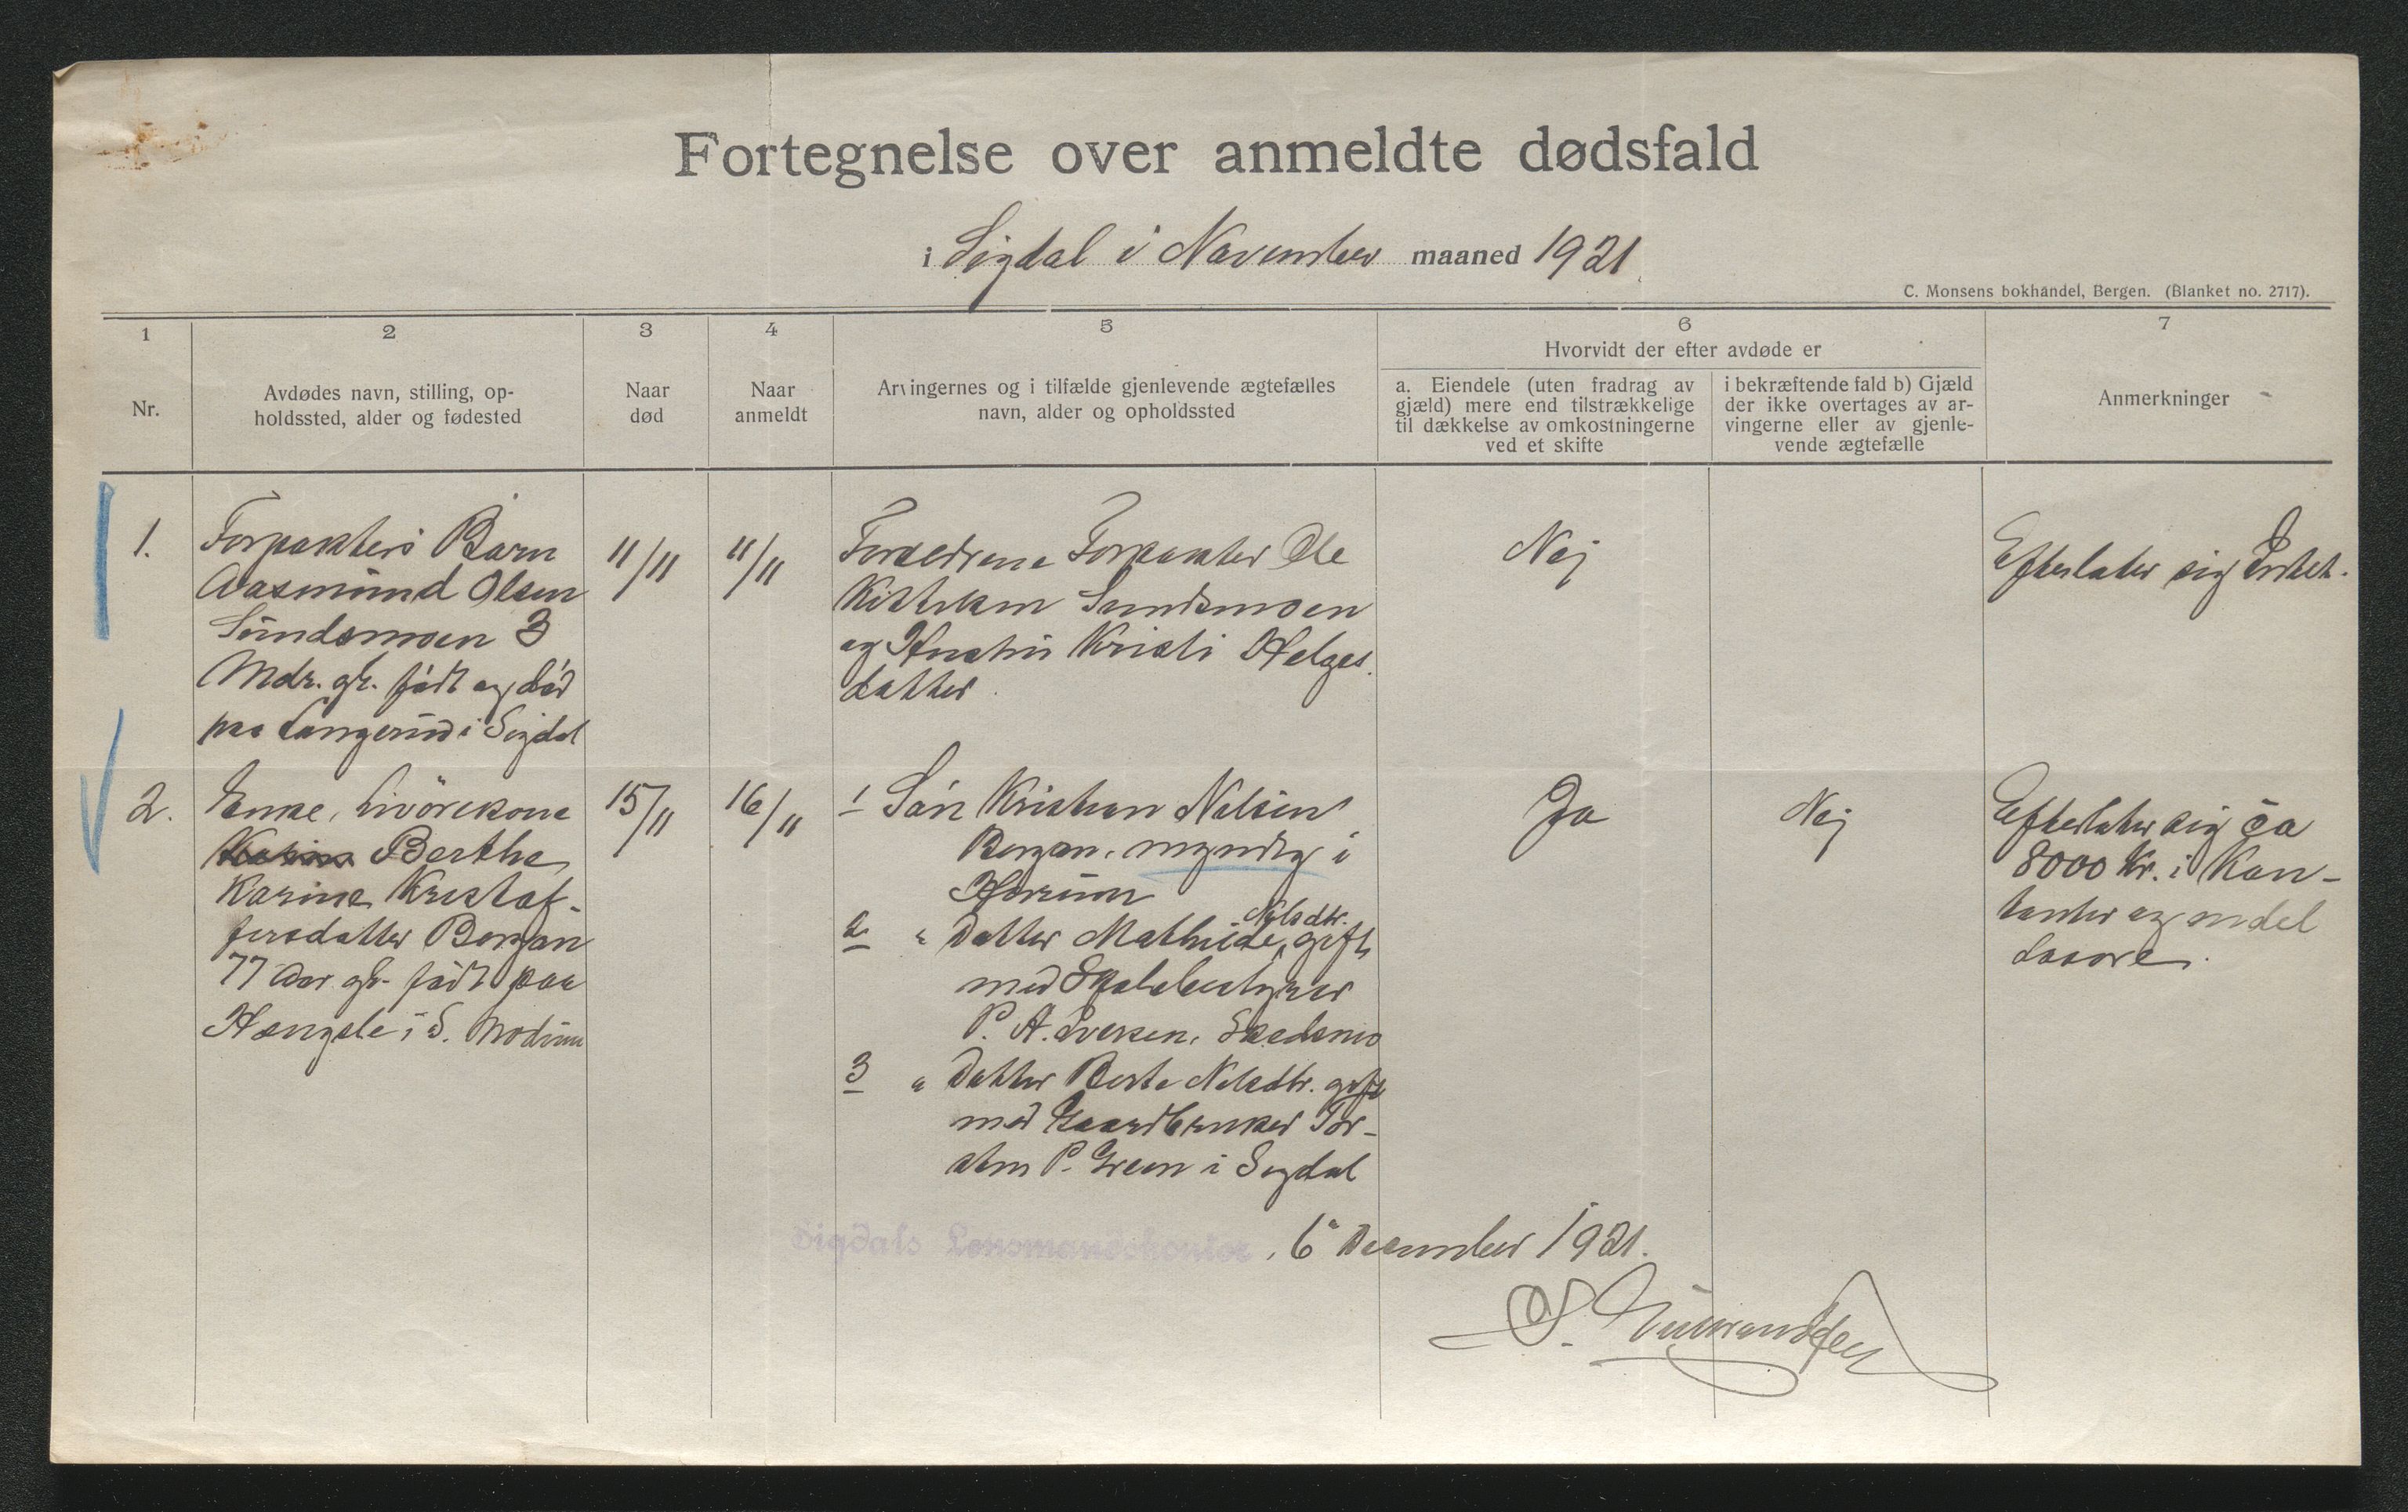 Fortegnelse over anmeldte dødsfald
i Sigdal i November maaned 1921
C. Monsens bokhandel, Bergen. (Blanket no. 2717).
1
2
3
4
5
6
7
Nr.
Avdødes navn, stilling, op-
holdssted, alder og fødested
Naar
død
Naar
anmeldt
Arvingernes og i tilfælde gjenlevende ægtefælles
navn, alder og opholdssted
Hvorvidt der efter avdøde er
a. Eiendele (uten fradrag av
gjæld) mere end tilstrækkelige
til dækkelse av omkostningerne
ved et skifte
i bekræftende fald b) Gjæld
der ikke overtages av ar-
vingerne eller av gjenle-
vende ægtefælle
Anmerkninger
1.
Forpakters Barn
Aasmund Olsen
Sundsmoen 3
Mdr. gl. født og død
paa Langerud i Sigdal
11/11
11/11
Forældrene Forpakter Ole
Kittilsen Sundsmoen
og Hustru Kristi Helges
datter.
Nej
Efterlater sig Intet.
2.
Enke, Livörekone
Berthe
Karine Kristof-
fersdatter Bergan
77 Aar gl. født paa
Hængsle i S. Modum
15/11
16/11
1 Søn Kristian Nilsen
Bergan, myndig i
2 " Datter Mathilde Nilsdtr. gift
med Skolebestyrer
P. A. Iversen, Skedsmo
3 " Datter Berte Nilsdtr. gift
med Gaardbruker Tor-
sten P. Green i Sigdal
Ja
Nej
Efterlater sig ca
8000 Kr. i Kon-
tanter og endel
Løsøre.
Sigdals Lensmandskontor, 6 December 1921.